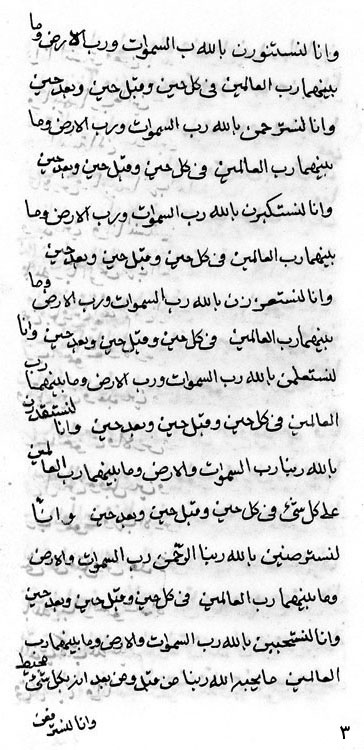 وانا لنستنورن بالله رب السموات ورب الارض وما
بينهما رب العالمين فى كل حين وقبل حين وبعد حين
وانا لنسترحمن بالله رب السموات ورب الارض وما
بينهما رب العالمين فى كل حين وقبل حين وبعد حين
وانا لنستكبرن بالله رب السموات ورب الارض وما
بينهما رب العالمين فى كل حين وقبل حين وبعد حين
وانا لنستعززن بالله رب السموات ورب الارض وما
بينهما رب العالمين فى كل حين وقبل حين وبعد حين وانا
لنستعلمن بالله رب السموات ورب الارض وما بينهما رب
العالمين فى كل حين وقبل حين وبعد حين وانا لنستقدرن
بالله ربنا رب السموات والارض وما بينهما رب العالمين
على كل شئ فى كل حين وقبل حين وبعد حين وانا
لنسترضين بالله ربنا الرحمن رب السموات والارض
وما بينهما رب العالمين فى كل حين وقبل حين وبعد حين
وانا لنستحببن بالله رب السموات والارض وما بينهما رب
العالمين بالله ربنا من قبل ومن بعد انه بكل شئ محيط
وانا لنسترفعن
٣